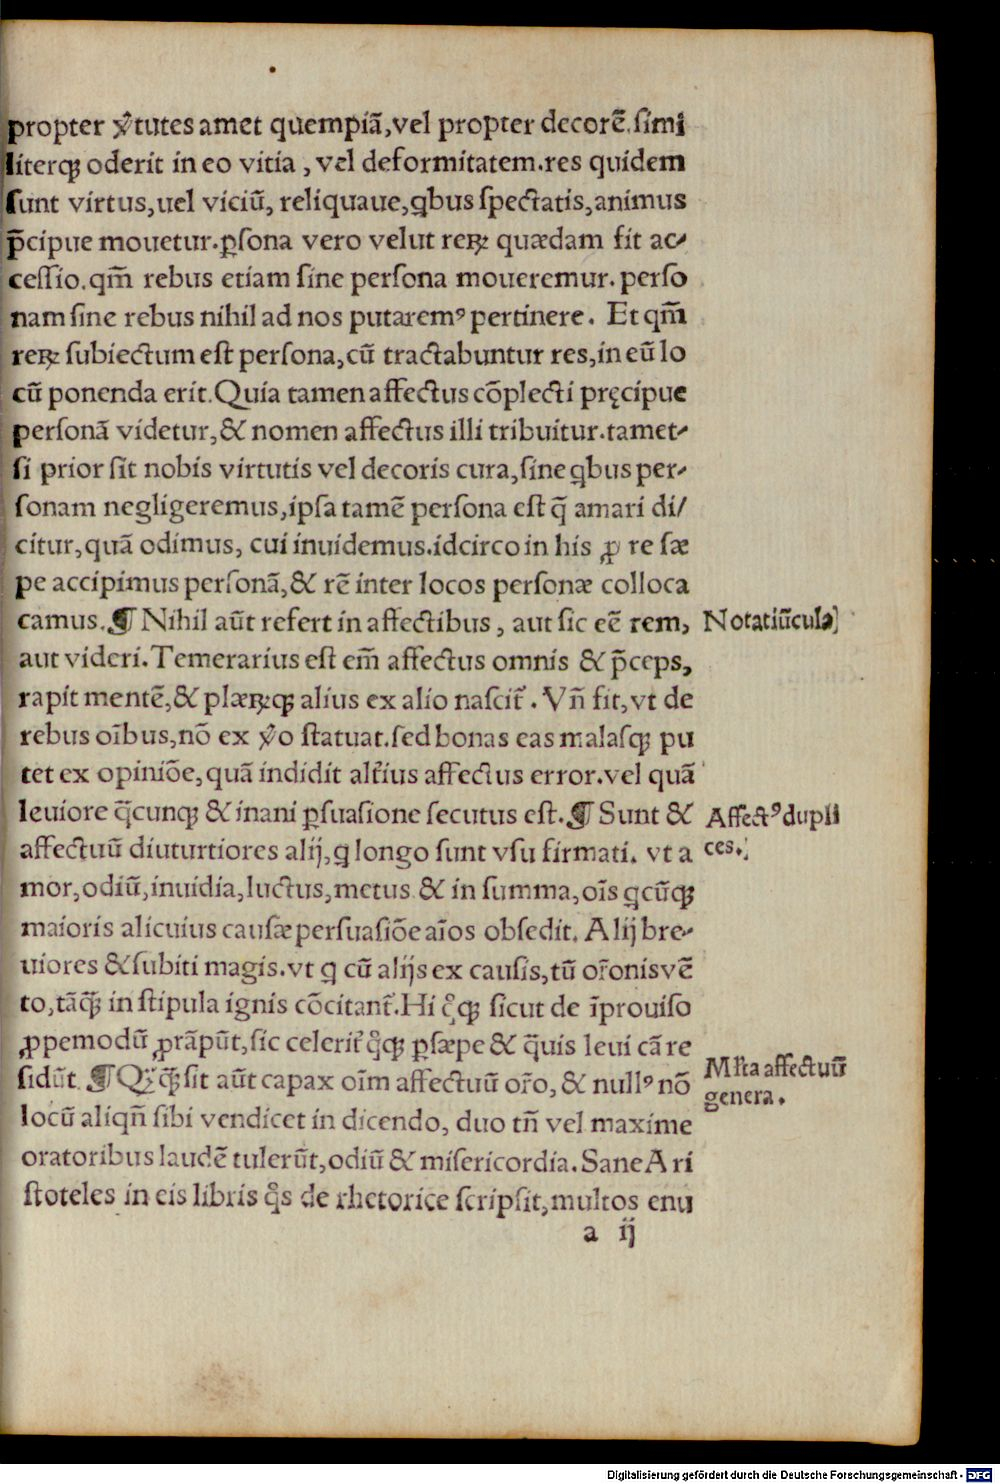 propter v̊tutes amet quempiã,vel propter decorẽ.ſimi
literqꝫ oderit in eo vitia , vel deformitatem.res quidem
ſunt virtus,uel viciũ, reliquaue,ꝗbus ſpectatis,animus
p̃cipue mouetur.ꝑſona vero velut reꝝ quædam fit ac⸗
ceſſio.qm̃ rebus etiam ſine perſona moueremur. perſo
nam ſine rebus nihil ad nos putaremꝰ pertinere. Et qm̃
reꝝ ſubiectum eſt perſona,cũ tractabuntur res,in eũ lo
cũ ponenda erit.Quia tamen affectus cõplecti pręcipue
perſonã videtur,& nomen affectus illi tribuitur.tamet⸗
ſi prior ſit nobis virtutis vel decoris cura,ſine ꝗbus per⸗
ſonam negligeremus,ipſa tamẽ perſona eſt q̃ amari di/
citur,quã odimus, cui inuidemus.idcirco in his ꝓ re ſæ
pe accipimus perſonã,& rẽ inter locos perſonæ colloca
camus.¶ Nihil aũt refert in affectibus , aut ſic eẽ rem,
Notatiũcula
aut videri.Temerarius eſt em̃ affectus omnis & p̃ceps,
rapit mentẽ,& plæꝝqꝫ alius ex alio naſcit᷑. Vñ fit,vt de
rebus oĩbus,nõ ex v̊o ſtatuat.ſed bonas eas malaſqꝫ pu
tet ex opiniõe,quã indidit alt᷑ius affectus error.vel quã
leuiore q̃cunqꝫ & inani ꝑſuaſione ſecutus eſt.¶ Sunt &
Affectꝰ dupli
ces.
affectuũ diuturtiores alij,ꝗ longo ſunt vſu firmati. vt a
mor,odiũ,inuidia,luctus,metus & in ſumma,oĩs ꝗcũqꝫ
maioris alicuius cauſæ perſuaſiõe aĩos obſedit. Alij bre⸗
uiores & ſubiti magis.vt ꝗ cũ alijs ex cauſis,tũ or̃onis vẽ
to,tãq̃ꝫ in ſtipula ignis cõcitant᷑.Hi qͥqꝫ ſicut de ĩprouiſo
ꝓpemodũ ꝓrãpũt,ſic celerit᷑ qͦqꝫ ꝑſæpe & q̃uis leui cã re
ſidũt. ¶ Qͣq̃ꝫ ſit aũt capax oĩm affectuũ or̃o, & nullꝰ nõ
Ml᷑ta affectuũ
genera.
locũ aliqñ ſibi vendicet in dicendo, duo tñ vel maxime
oratoribus laudẽ tulerũt,odiũ & miſericordia.Sane Ari
ſtoteles in eis libris qͦs de rhetorice ſcripſit,multos enu
a ij
Digitalisierung gefördert durch die Deutsche Forschungsgemeinschaft - DFG